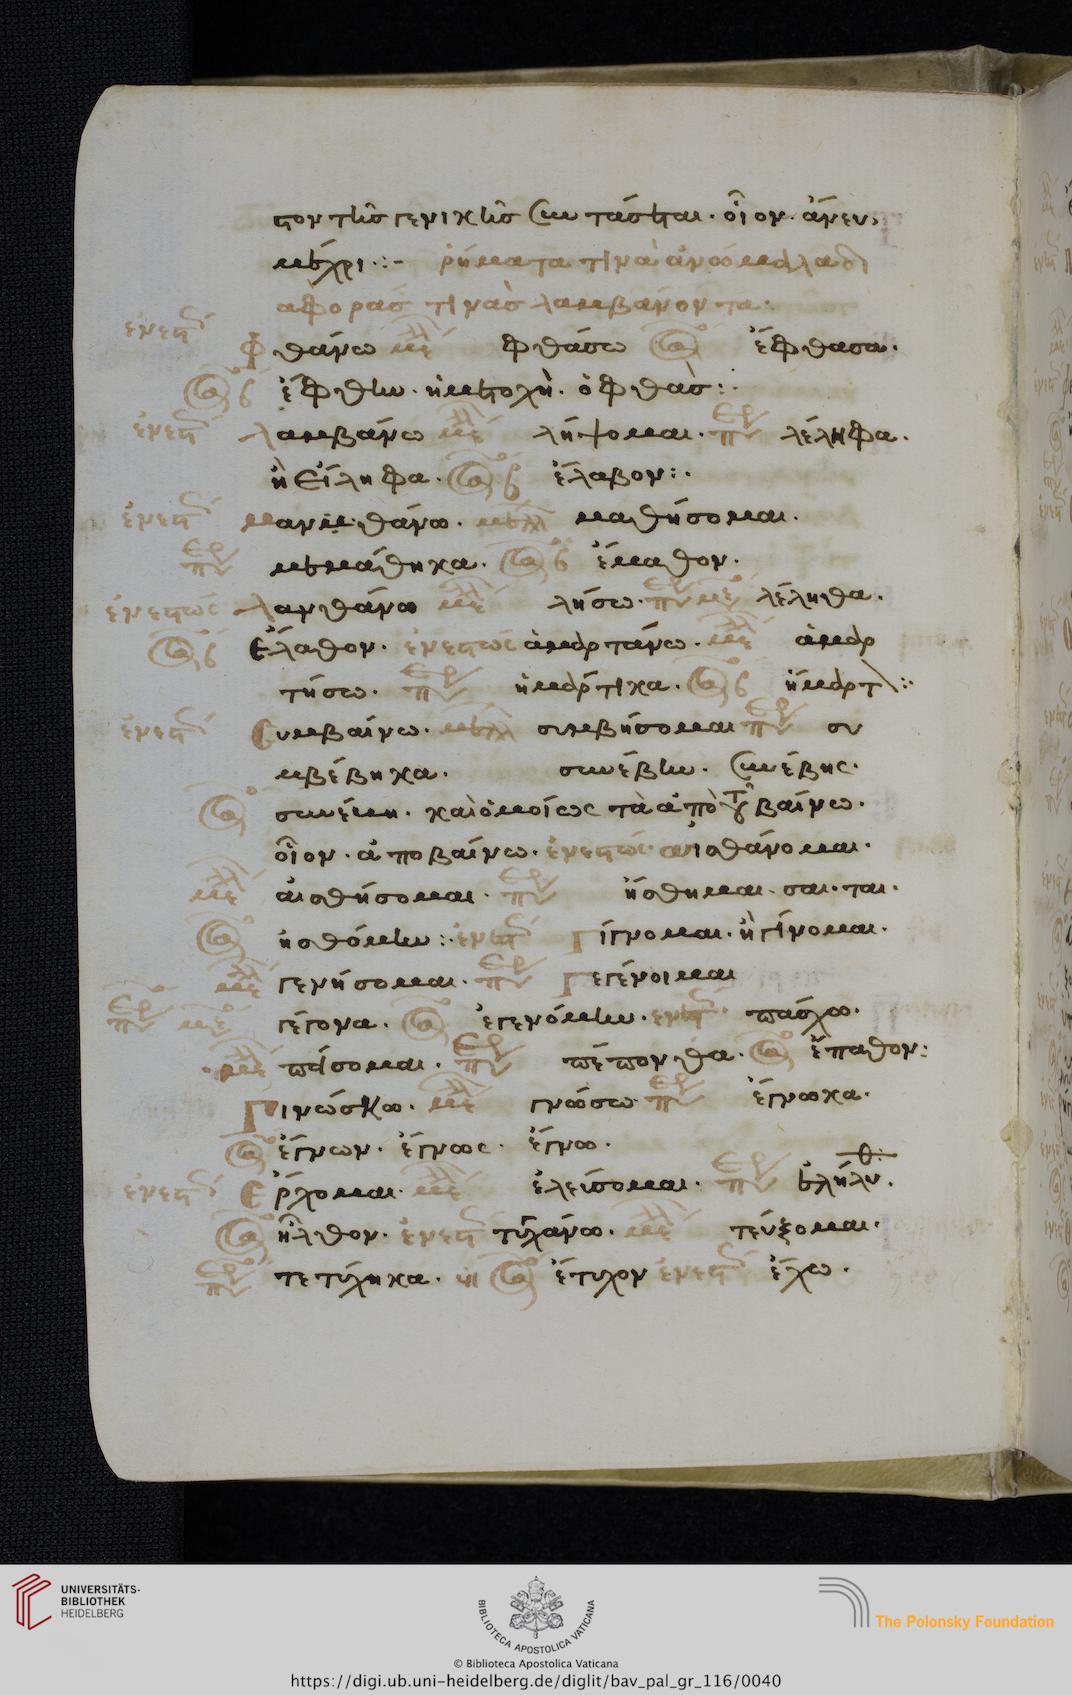 που τῆς γενικῆς συντάσσεται. οἷον. ἄνευ,
μέχρι :- ῥήματα τινὰ ἀνώμαλα δι
αφορὰς τινὰς λαμβάνοντα.
ἐνεστ φθάνω μελ φθάσω ἔφθασα.
β ἔφθην. ἡ μετοχὴ. ὁ φθάς :
ἐνεστ λαμβάνω μελ λήψομαι. λέληφα.
ἢ εἴληφα. β ἔλαβον :.
ἐνεστ μανθάνω. μελλ μαθήσομαι.
μεμάθηκα. β ἔμαθον.
ἐνεστὼς λανθάνω μελ λήσω. μέ λέληθα.
β ἔλαθον. ἐνεστὼς ἁμαρτάνω. μελ ἁμαρ
τήσω. ἡμάρτικα. β ἥμαρτ :
ἐνεστ συμβαίνω. μελλ συμβήσομαι συ
μβέβηκα. συνέβην. συνέβης.
συνέβη. καὶ ὁμοίως τὰ ἀπὸ τοῦ βαίνω.
οἷον. ἀποβαίνω. ἐνεστὼς αἰσθάνομαι.
μελ αἰσθήσομαι. ᾔσθημαι. σαι. ται.
ἠσθόμην :. ἐνεστ γίγνομαι. ἢ γίνομαι.
μελ γενήσομαι. γεγένοιμαι
μέ γέγονα. ἐγενόμην. ἐνεστ πάσχω.
μελ πείσομαι. πέπονθα. ἔπαθον :
γινώσκω. μελ γνώσω ἔγνωκα.
ἔγνων. ἔγνως. ἔγνω.
θ :
ἐνεστ ἔρχομαι. μελ ἐλείσομαι. ἐλήλυ.
ἦλθον. ἐνεστ τυγχάνω. μελ τεύξομαι.
τετύχηκα. ἔτυχον ἐνεστ ἔχω.
UNIVERSITÄTS-
BIBLIOTHEK
HEIDELBERG
BIBLIOTECA APOSTOLICA VATICANA
The Polonsky Foundation
© Biblioteca Apostolica Vaticana
https://digi.ub.uni-heidelberg.de/diglit/bav_pal_gr_116/0040